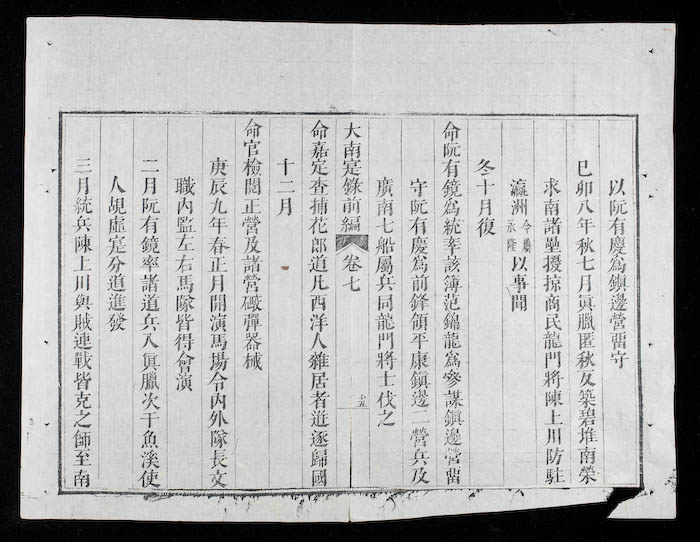 以阮有慶為鎮邊營畱守
己卯八年秋七月真臘匿秋反築碧堆南榮
求南諸壘擾掠商民龍門將陳上川防駐
瀛洲今屬永隆以事聞
冬十月復
命阮有鏡為統率該簿范錦龍為參謀鎮邊營畱
守阮有慶為前鋒領平康鎮邊二營兵及
廣南七船屬兵同龍門將士伐之
大南寔錄前編 卷七 十五
命嘉定查捕花郎道凡西洋人雜居者逬逐歸國
十二月
命官檢閱正營及諸營礮彈器械
庚辰九年春正月開演馬場令內外隊長文
職內監左右馬隊皆得會演
二月阮有鏡率諸道兵入真臘次于魚溪使
人覘虛寔分道進發
三月統兵陳上川與賊連戰皆克之師至南